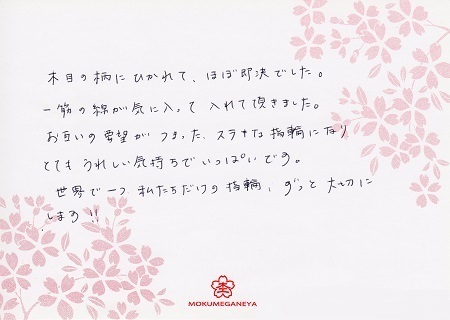 木目の柄にひかれて、ほぼ即決でした。
一筋の線が気に入って入れて頂きました。
お互いの要望がつまった、ステキな指輪になり
とてもうれしい気持ちでいっぱいです。
世界で一つ私たちだけの指輪、ずっと大切に
します!!
MOKUMEGANEYA